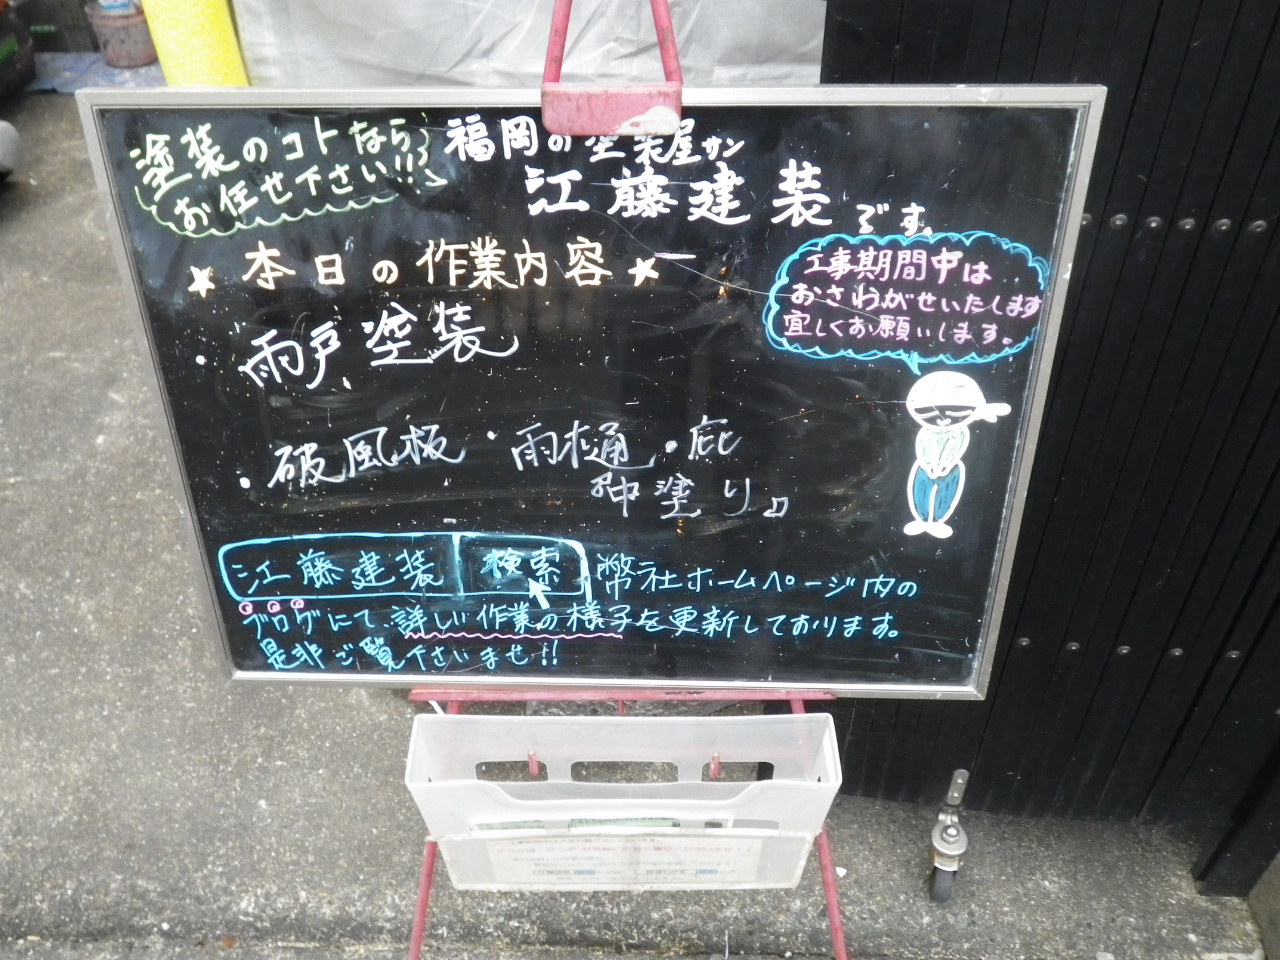 塗装のコトなら
お任せ下さい!!
福岡の塗装屋サン
江藤建装です。
★本日の作業内容★
・雨戸塗装
・破風板・雨樋・庇
『中塗り』
工事期間中は
おさわがせいたします
宜しくお願いします。
江藤建装 検索 幣社ホームページ内の
ブログにて、詳しい作業の様子を更新しております。
是非ご覧下さいませ!!